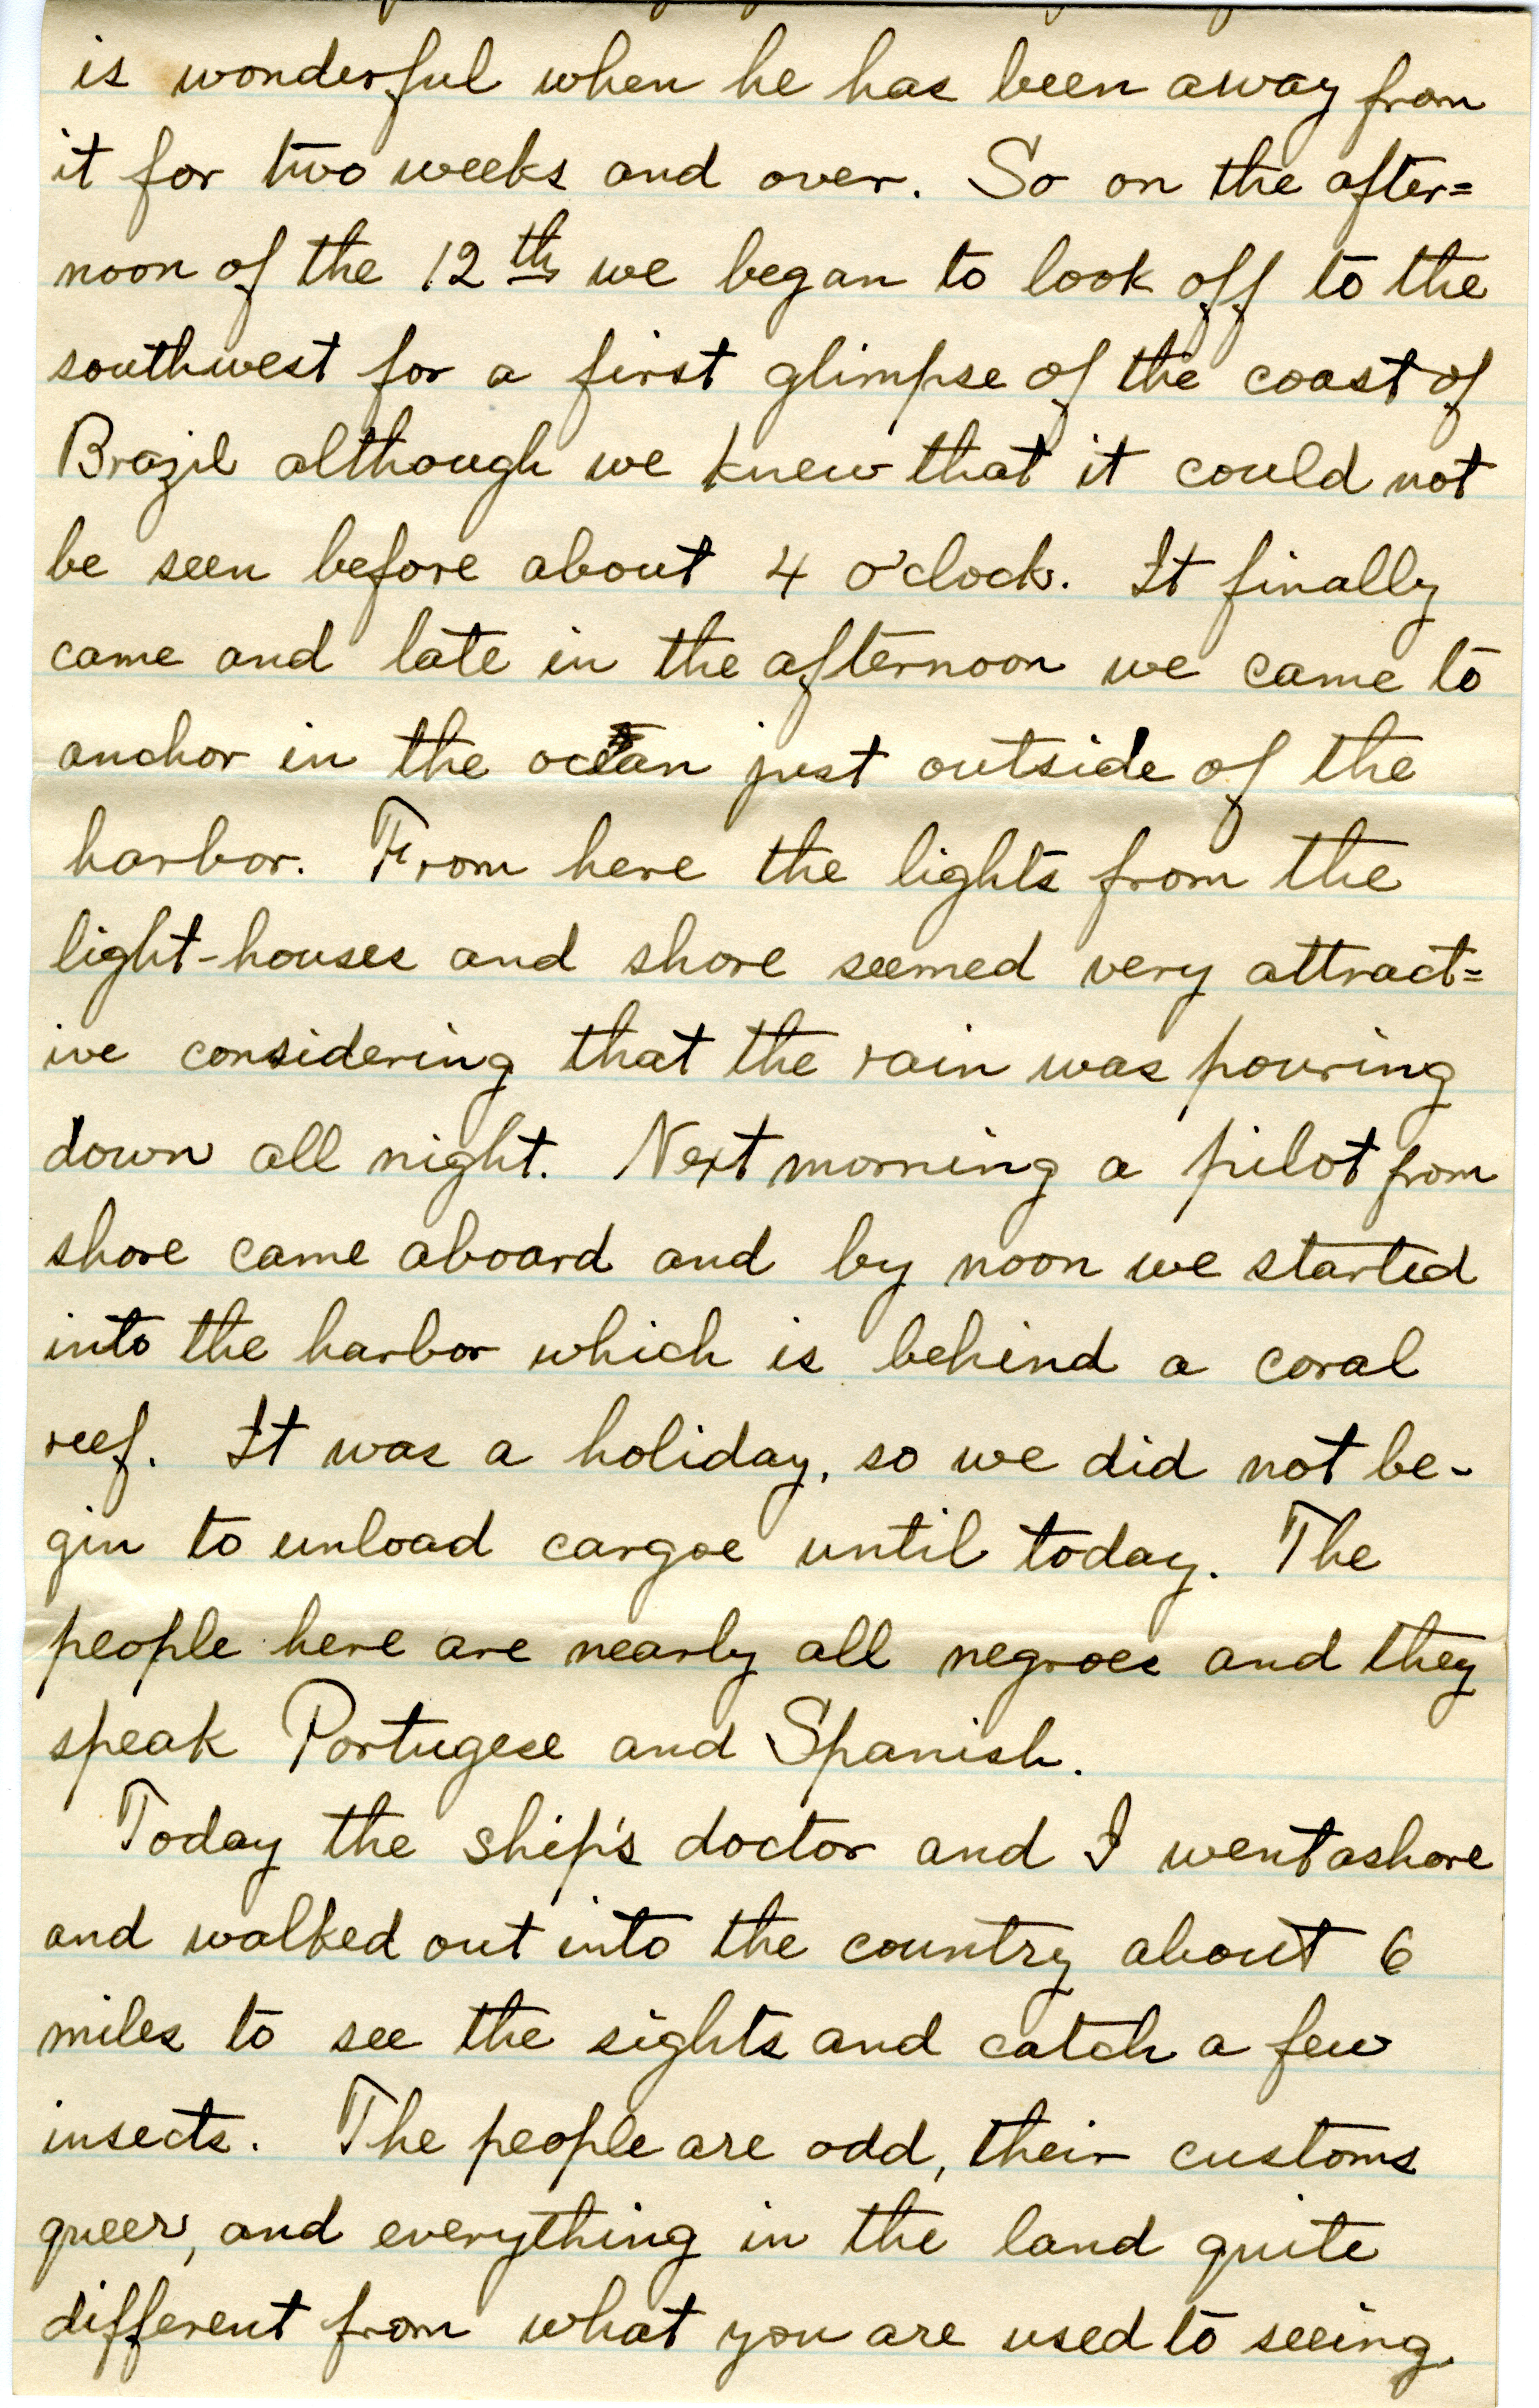 is wonderful when he has been away from
it for two weeks and over. So on the after=
noon of the 12th we began to look off to the
southwest for a first glimpse of the coast of
Brazil although we knew that it could not
be seen before about 4 o'clock. It finally
came and late in the afternoon we came to
anchor in the ocean just outside of the
harbor. From here the lights from the
light-houses and shore seemed very attract=
ive considering that the rain was pouring
down all night. Next morning a pilot from
shore came aboard and by noon we started
into the harbor which is behind a coral
reef. It was a holiday, so we did not be-
gin to unload cargoe until today. The
people here are nearly all negroes and they
speak Portugese and Spanish.
Today the ship's doctor and I went ashore
and walked out into the country about 6
miles to see the sights and catch a few
insects. The people are odd, their customs
queer, and everything in the land quite
different from what you are used to seeing.